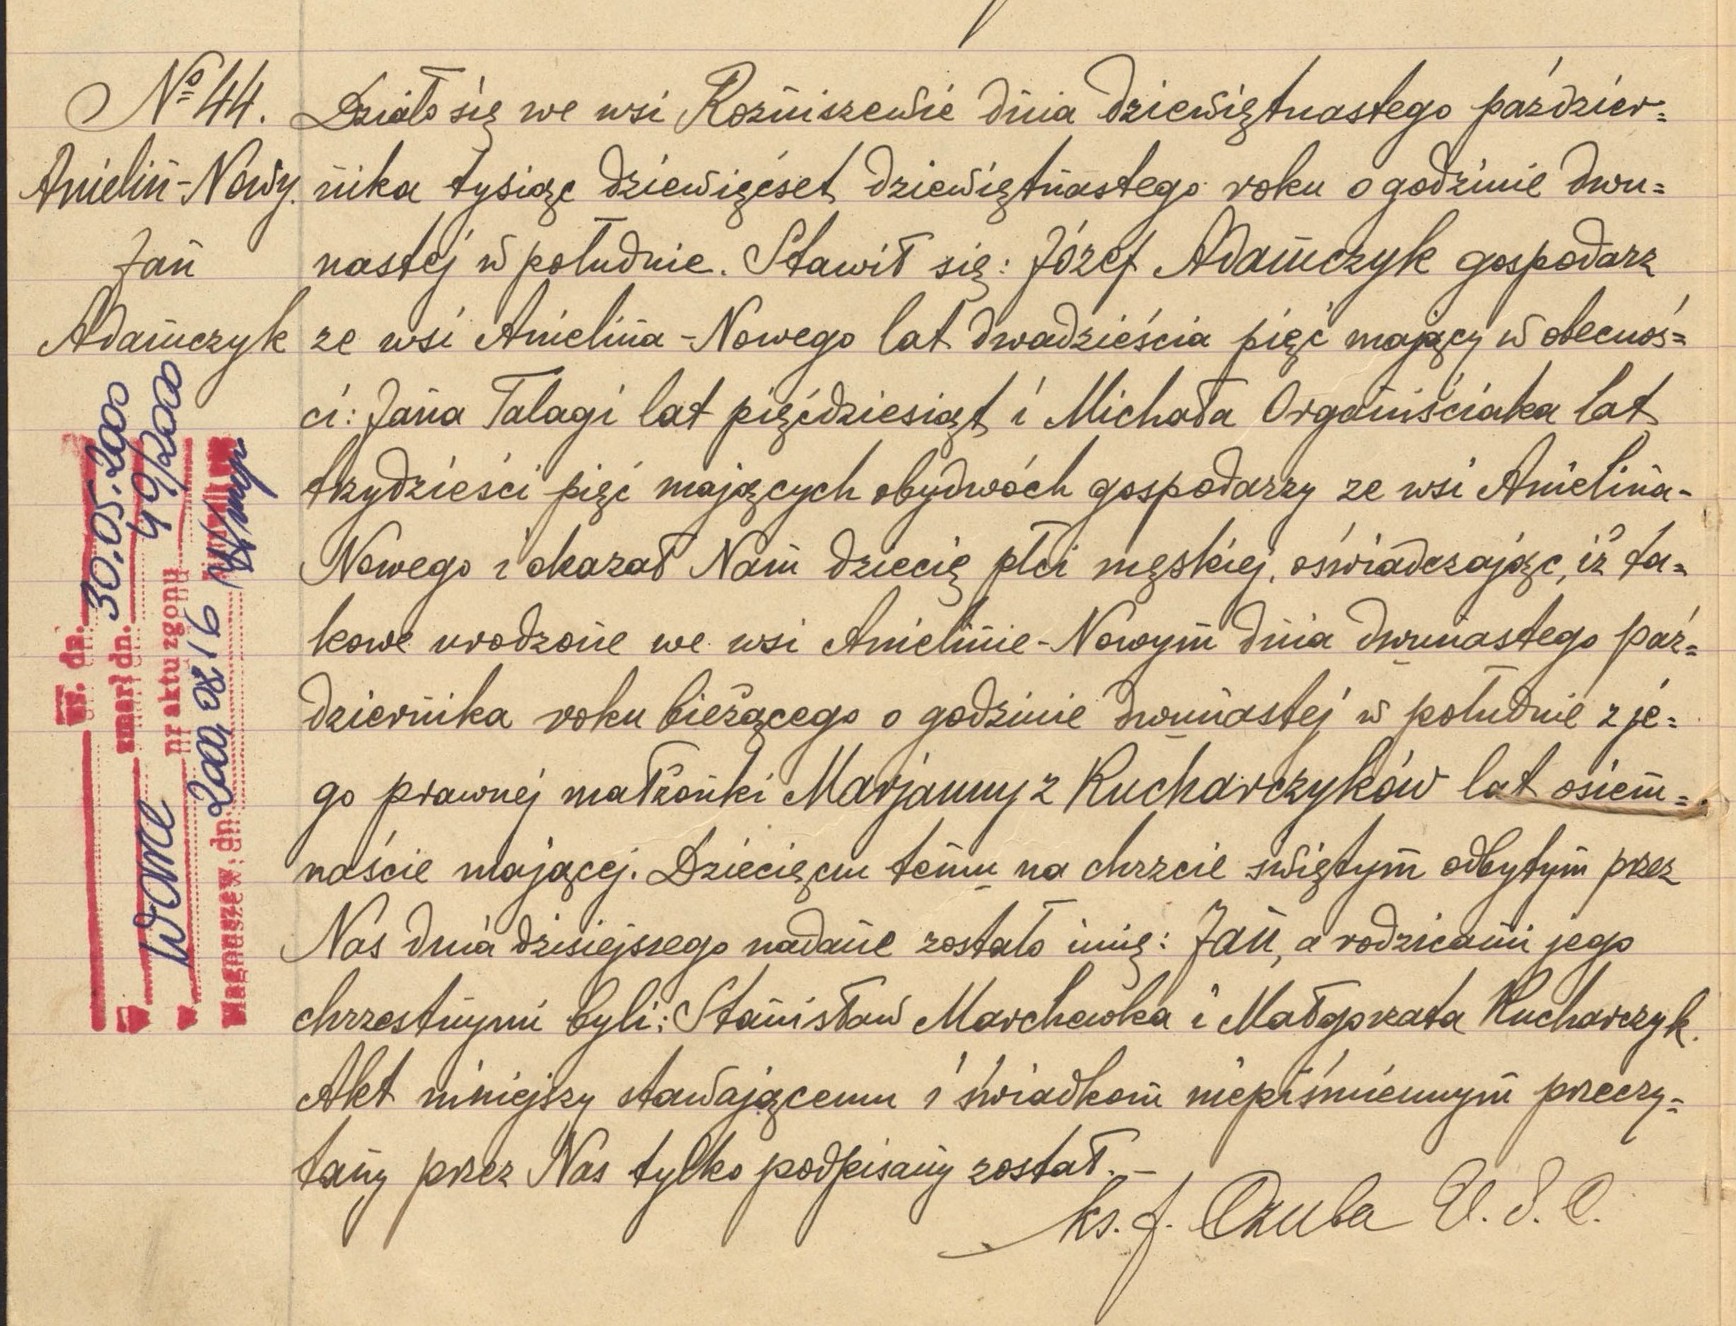 № 44.
Anielin-Nowy.
Jan
Adamczyk
Działo się we wsi Rozniszewie dnia dziewiętnastego paździer=
nika tysiąc dziewięćset dziewiętnastego roku o godzinie dwu=
nastej w południe. Stawił się: Józef Adamczyk gospodarz
ze wsi Anielina-Nowego lat dwadzieścia pięć mający w obecnoś=
ci: Jana Talagi lat pięćdziesiąt i Michała Organiściaka lat
trzydzieści pięć mających obydwóch gospodarzy ze wsi Anielina-
Nowego i okazał Nam dziecię płci męskiej, oświadczając, iż ta=
kowe urodzone we wsi Anielinie-Nowym dnia dwunastego paź=
dziernika roku bieżącego o godzinie dwunastej w południe z je=
go prawnej małżonki Marjanny z Kucharczyków lat osiem=
naście mającej. Dziecięciu temu na chrzcie świętym odbytym przez
Nas dnia dzisiejszego nadane zostało imię: Jan, a rodzicami jego
chrzestnymi byli: Stanisław Marchewka i Małgorzata Kucharczyk.
Akt niniejszy stawającemu i świadkom niepiśmiennym przeczy=
tany przez Nas tylko podpisany został. –
ks. J. Czuba U.S.C.
zw. dn.
zmarł dn. 30.05.2000
w Wome nr aktu zgonu 49/2000
Magnuszew, dn. 2000 08 16